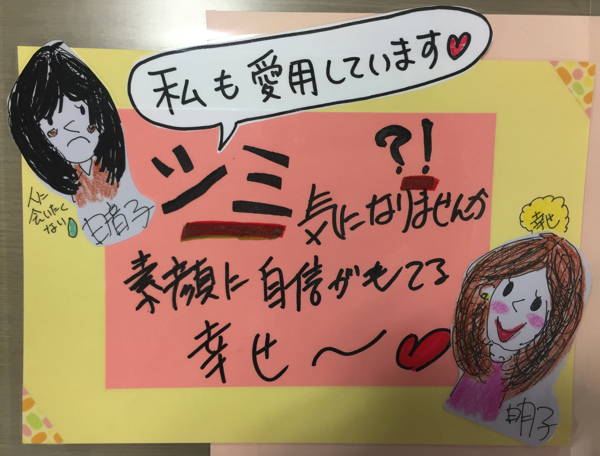 私も愛用しています♥
シミ
?!
気になりませんか
素顔に自信がもてる
幸せ〜♥
人に
会いたく
ない
暗子
幸せ
明子